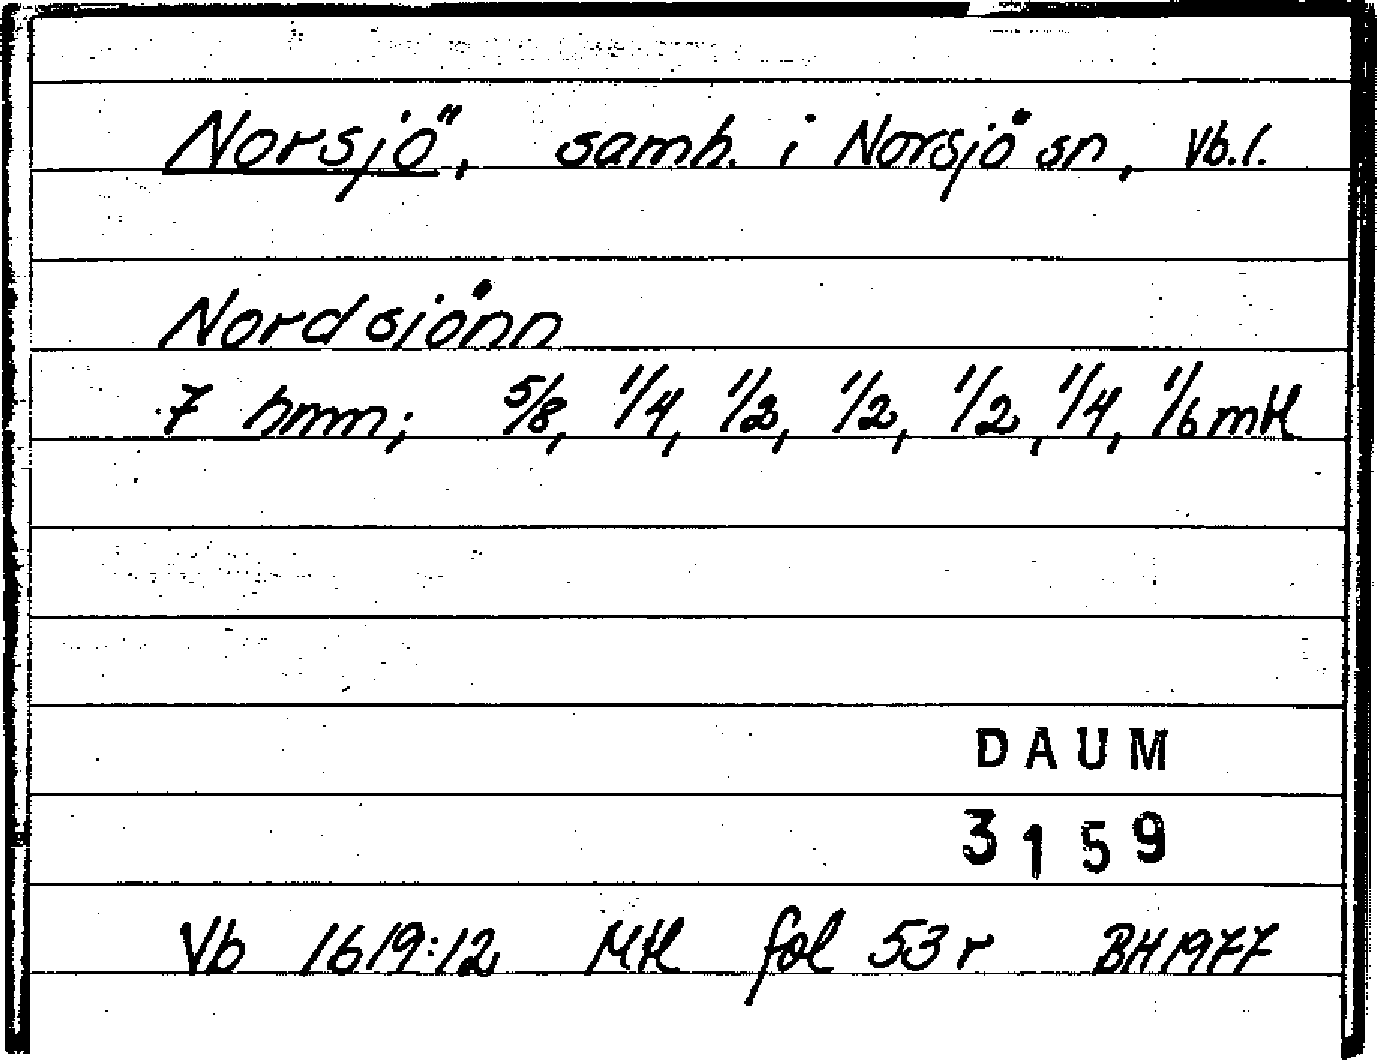 Norsjö, samh. i Norsjö sn, Vb.l.
Nordsiönn
7 hmn; 5/8, 1/4, 1/2, 1/2, 1/2, 1/4, 1/6 mtl
DAUM
3159
Vb 1619:12 Mtl fol 53 r BH 1977